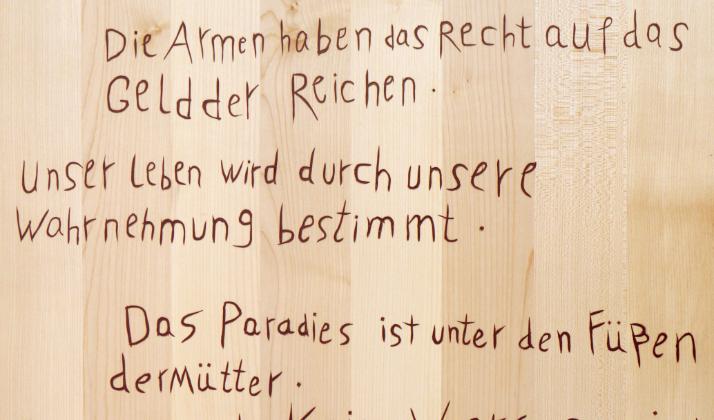 Die Armen haben das Recht auf das
Geld der Reichen.
Unser Leben wird durch unsere
Wahrnehmung bestimmt.
Das Paradies ist unter den Füßen
der Mütter.